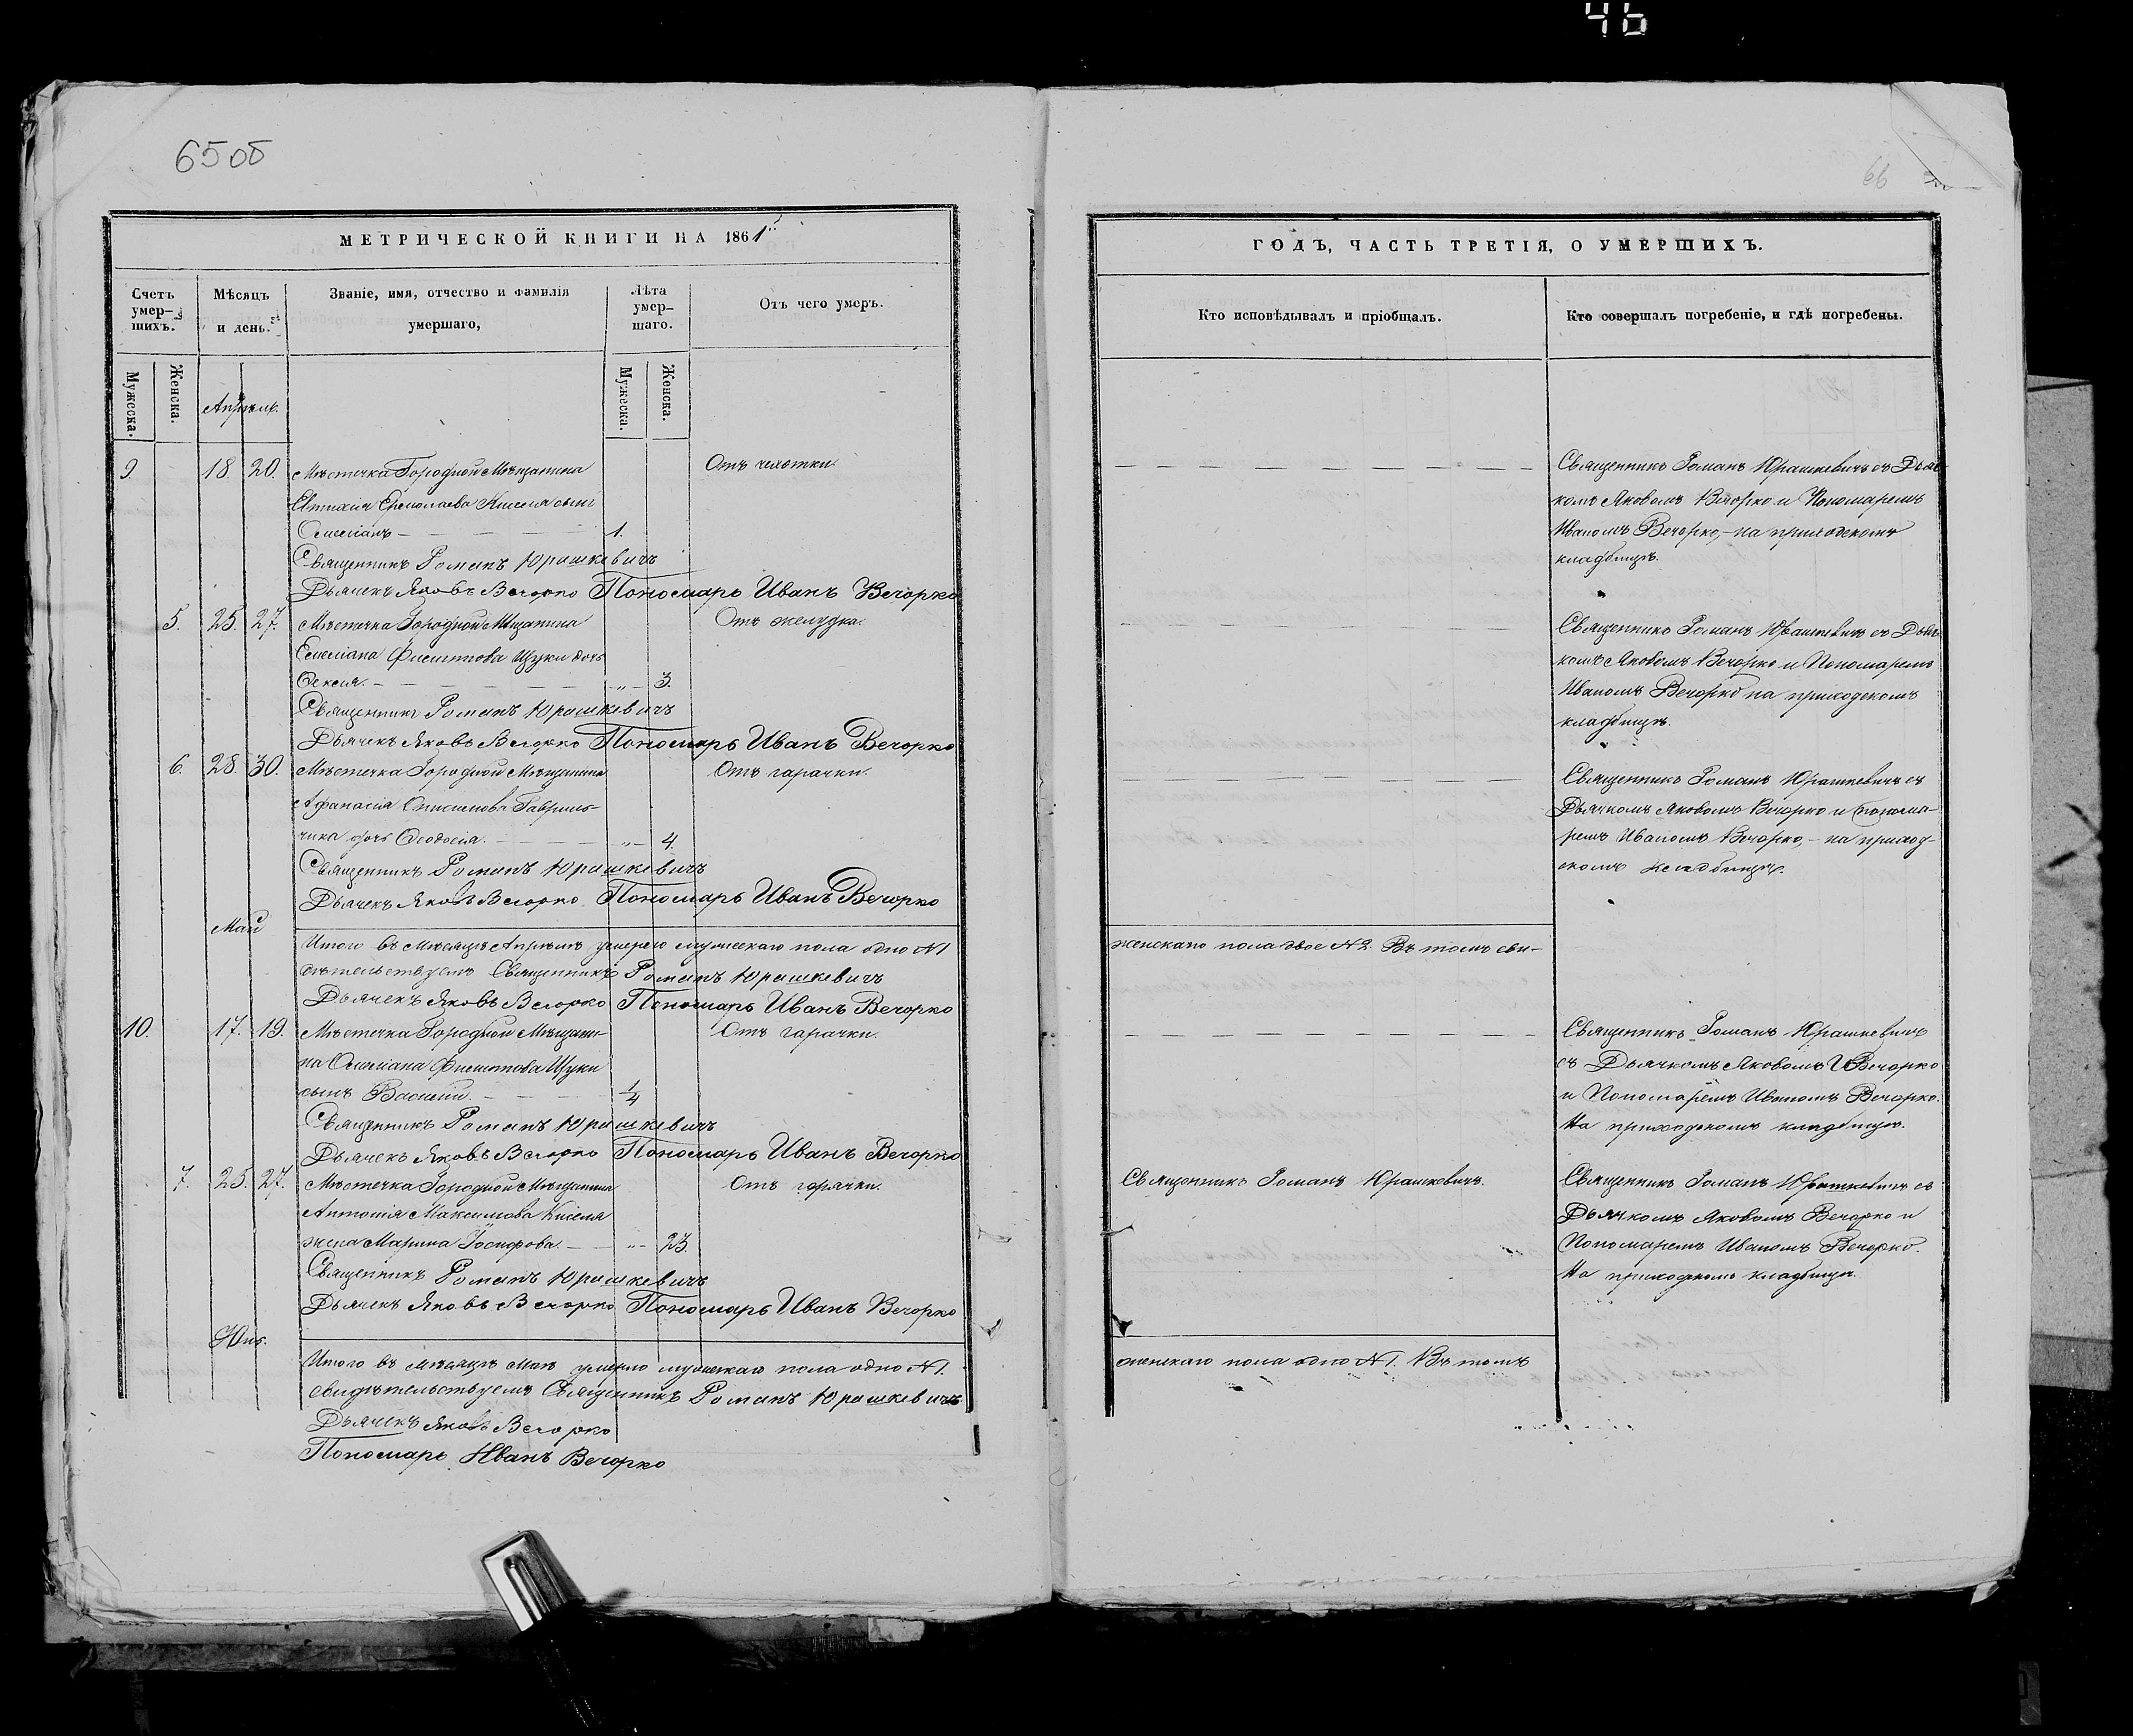 46
65 об
66
МЕТРИЧЕСКОЙ КНИГИ НА 1861й
Счетъ умер-шихъ.
Мѣсяцъ и день.
Званіе, имя, отчество и фамилія умершаго,
Лѣта умер-шаго.
Отъ чего умеръ.
Мужеска.
Женска.
Мужеска.
Женска.
Апрѣль.
9. 18. 20. Мѣстечка Городной Мѣщанина Отъ чахотки.
Евтихія Ермолаева Киселя сынъ
Емеліанъ 1.
Священникъ Романъ Юрашкевичъ
Дьячекъ Яковъ Вечорко Пономарь Иванъ Вечорко
5. 25. 27. Мѣстечка Городной Мѣщанина Отъ желудка.
Емеліана Филиппова Щуки дочь
Ѳекла. „ 3.
Священникъ Романъ Юрашкевичъ
Дьячекъ Яковъ Вечорко Пономарь Иванъ Вечорко
6. 28. 30. Мѣстечка Городной Мѣщанина Отъ гарачки.
Афанасія Онисимова Гавриль-
чика дочь Ѳеодосія. „ 4.
Священникъ Романъ Юрашкевичъ
Дьячекъ Яковъ Вечорко Пономарь Иванъ Вечорко
Май
Итого въ Мѣсяцѣ Апрѣлѣ умерло мужескаго пола одно №1
дѣтельствуемъ Священникъ Романъ Юрашкевичъ
Дьячекъ Яковъ Вечорко Пономарь Иванъ Вечорко
10. 17. 19. Мѣстечка Городной Мѣщани- Отъ гарачки.
на Емеліана Филиппова Щуки
сынъ Василій. 1/4
Священникъ Романъ Юрашкевичъ
Дьячекъ Яковъ Вечорко Пономарь Иванъ Вечорко
7. 25. 27. Мѣстечка Городной Мѣщанина Отъ горячки.
Антонія Максимова Киселя
жена Марина Іосифова. „ 23.
Священникъ Романъ Юрашкевичъ
Дьячекъ Яковъ Вечорко Пономарь Иванъ Вечорко
Юнь.
Итого въ мѣсяцѣ Маѣ умерло мужескаго пола одно №1.
свидѣтельствуемъ Священникъ Романъ Юрашкевичъ
Дьячекъ Яковъ Вечорко
Пономарь Иванъ Вечорко
ГОДЪ, ЧАСТЬ ТРЕТІЯ, О УМЕРШИХЪ.
Кто исповѣдывалъ и пріобщалъ.
Кто совершалъ погребеніе, и гдѣ погребены.
Священникъ Романъ Юрашкевичъ съ Дьяч-
комъ Яковомъ Вечорко и Пономаремъ
Иваномъ Вечорко,- на приходскомъ
кладбищѣ.
Священникъ Романъ Юрашкевичъ съ Дьяч-
комъ Яковомъ Вечорко и Пономаремъ
Иваномъ Вечорко на приходскомъ
кладбищѣ.
Священникъ Романъ Юрашкевичъ съ
Дьячкомъ Яковомъ Вечорко и Понома-
ремъ Иваномъ Вечорко,- на приход-
скомъ кладбищѣ.
женскаго пола двое №2. Въ томъ сви-
Священникъ Романъ Юрашкевичъ
съ Дьячкомъ Яковомъ Вечорко
и Пономаремъ Иваномъ Вечорко.
На приходскомъ кладбищѣ.
Священникъ Романъ Юрашкевичъ.
Священникъ Романъ Юрашкевичъ съ
Дьячкомъ Яковомъ Вечорко и
Пономаремъ Иваномъ Вечорко.
На приходскомъ кладбищѣ.
женскаго пола одно №1. Въ томъ